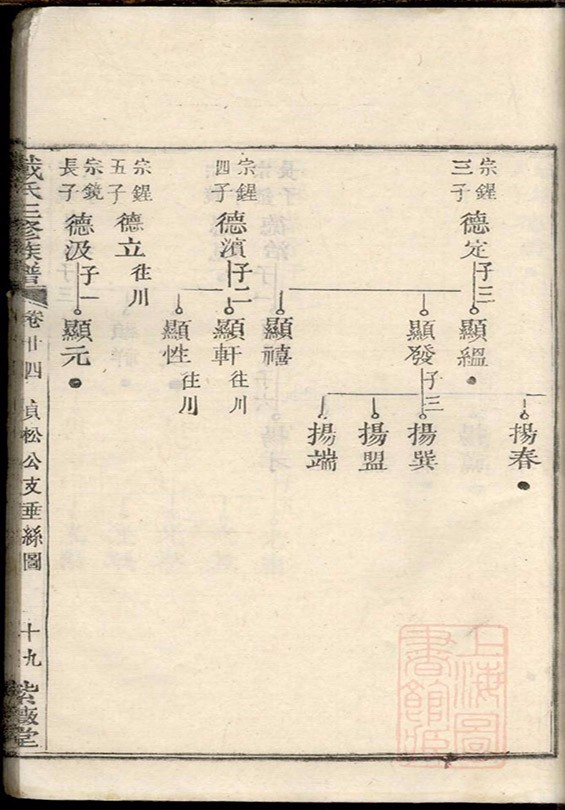 宗鍟
三子
德定
子三
顯緼
顯發
子三
顯禧
揚春
揚巽
揚盟
揚端
宗鍟
四子
德濱
子二
顯軒
往川
顯性
往川
宗鍟
五子
德立
往川
宗鏡
長子
德汲
子一
顯元
戴氏三修族譜
卷廿四
貞松公支垂絲圖
十九
紫薇堂
上海圖
書館藏